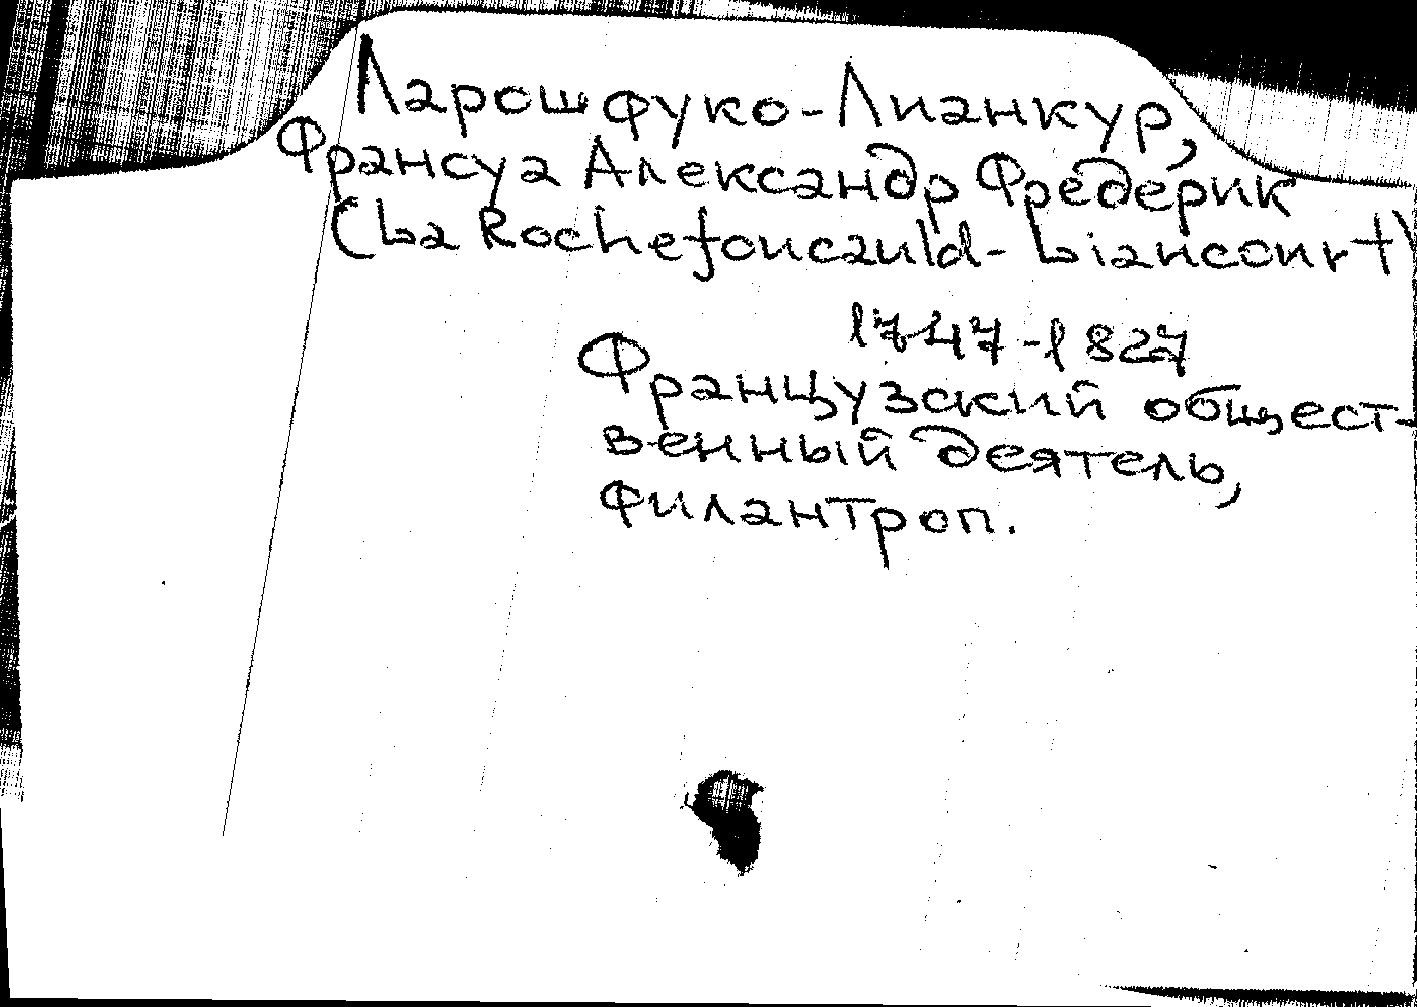 Ларошфуко-Лианкур,
Франсуа Александр Фредерик
(La Rochefoucauld-Liancourt)
1747-1827
Французский общест-
венный деятель,
филантроп.